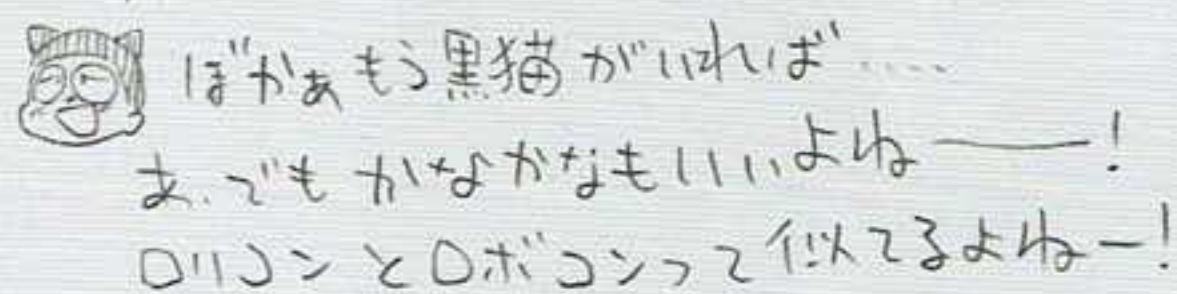 ぼかぁもう黒猫がいれば……
あ、でもかなかなもいいよねー!
ロリコンとロボコンって似てるよねー!